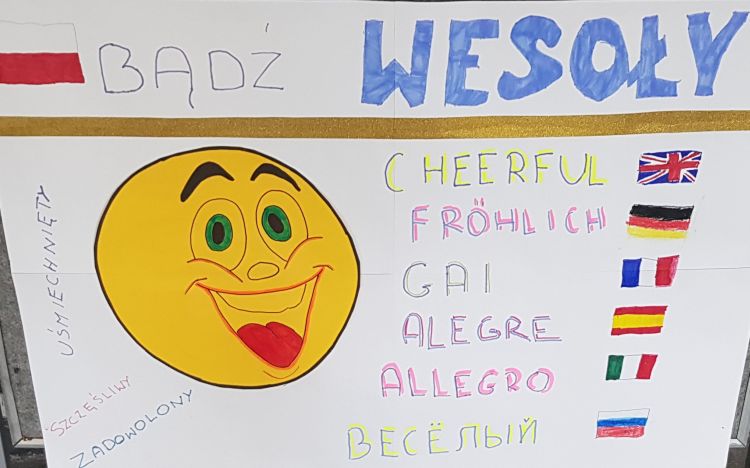 BĄDŹ WESOŁY
CHEERFUL
FRÖHLICH
GAI
ALEGRE
ALLEGRO
ВЕСЁЛЫЙ
UŚMIECHNIĘTY
SZCZĘŚLIWY
ZADOWOLONY